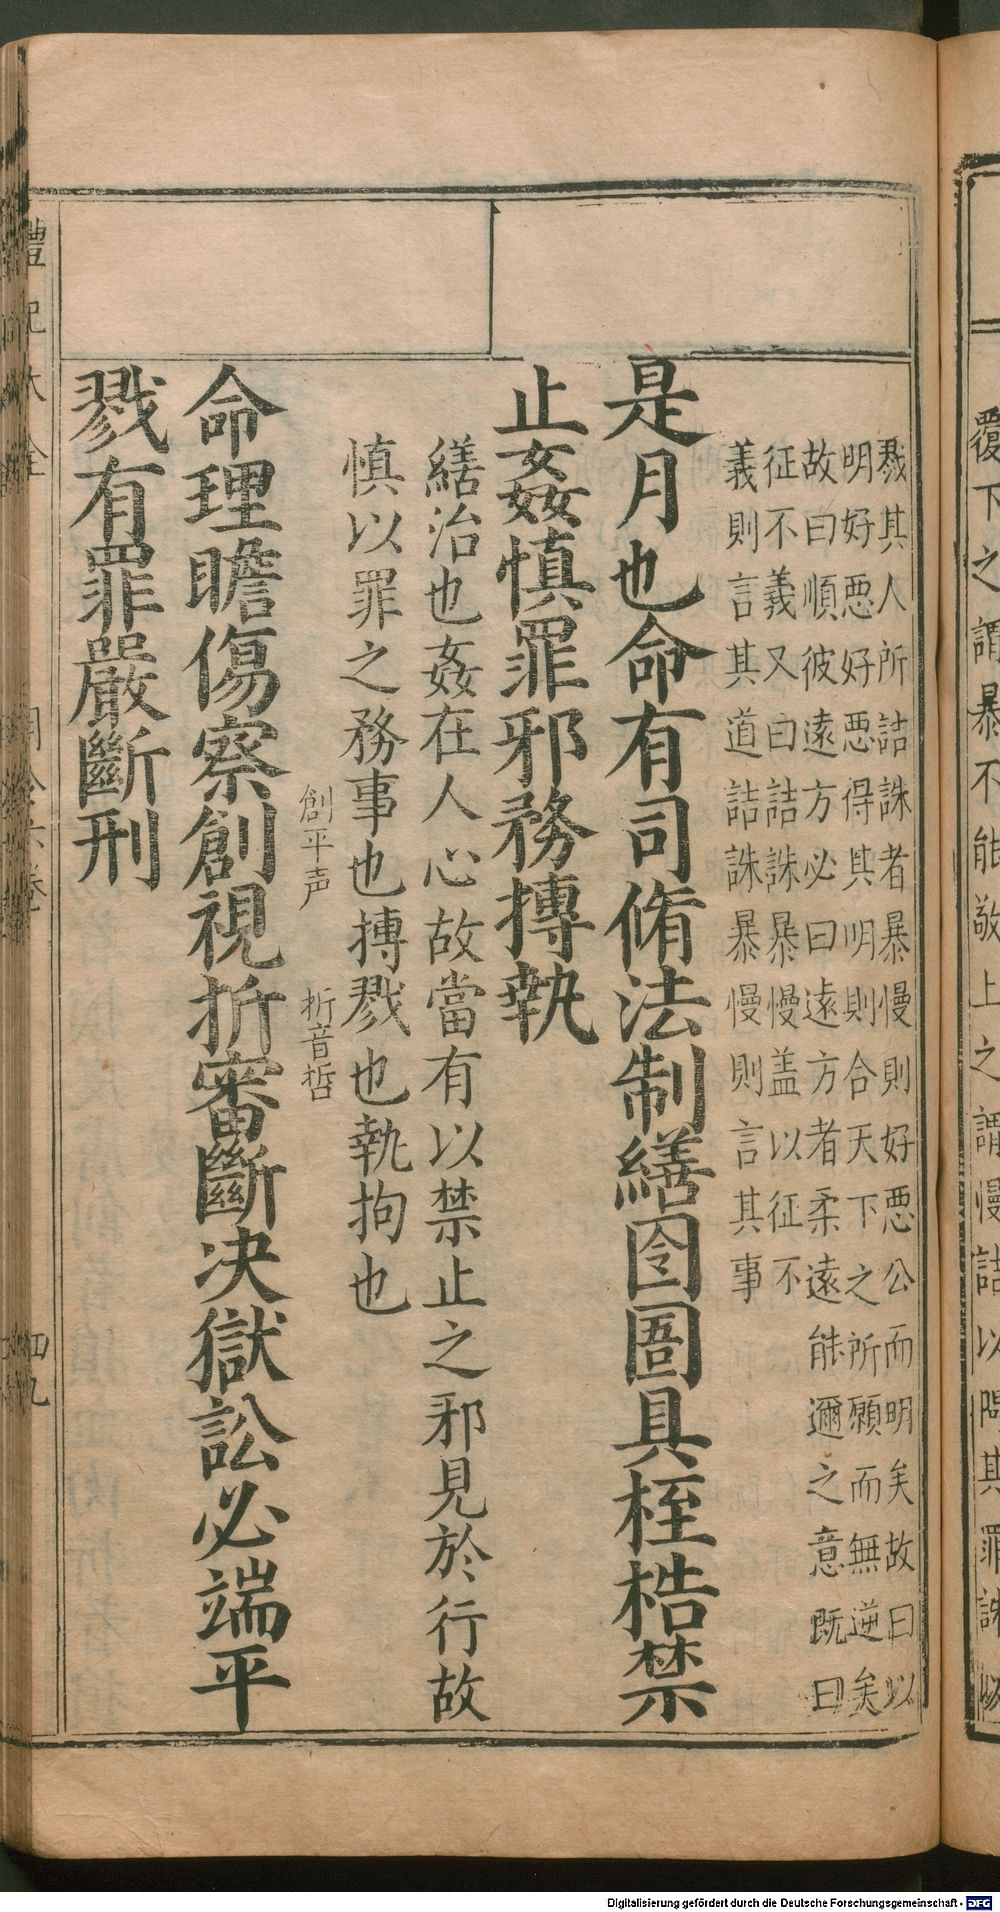 覆下之謂暴不能敬上之謂慢詰以問其罪誅以
戮其人所詰誅者暴慢則好惡公而明矣故曰以
明好惡好惡得其明則合天下之所願而無逆矣
故曰順彼遠方必曰遠方者柔遠能邇之意既曰
征不義又曰詰誅暴慢盖以征不
義則言其道詰誅暴慢則言其事
是月也命有司脩法制繕囹圄具桎梏禁
止姦慎罪邪務搏執
繕治也姦在人心故當有以禁止之邪見於行故
慎以罪之務事也搏戮也執拘也
創平声 折音哲
命理瞻傷察創視折審斷決獄訟必端平
戮有罪嚴斷刑
禮記大全
四九
Digitalisierung gefördert durch die Deutsche Forschungsgemeinschaft - DFG